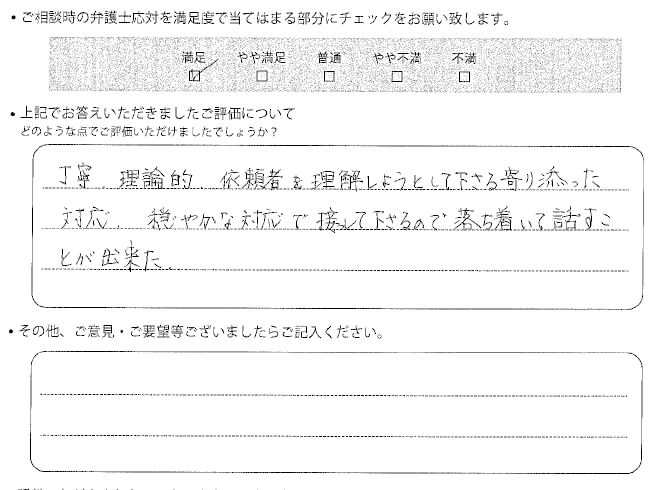 • ご相談時の弁護士応対を満足度で当てはまる部分にチェックをお願い致します。
満足 やや満足 普通 やや不満 不満
• 上記でお答えいただきましたご評価について
どのような点でご評価いただけましたでしょうか?
丁寧 理論的 依頼者を理解しようとして下さる寄り添った
対応. 穏やかな対応で接して下さるので落ち着いて話すこ
とが出来た.
• その他、ご意見・ご要望等ございましたらご記入ください。